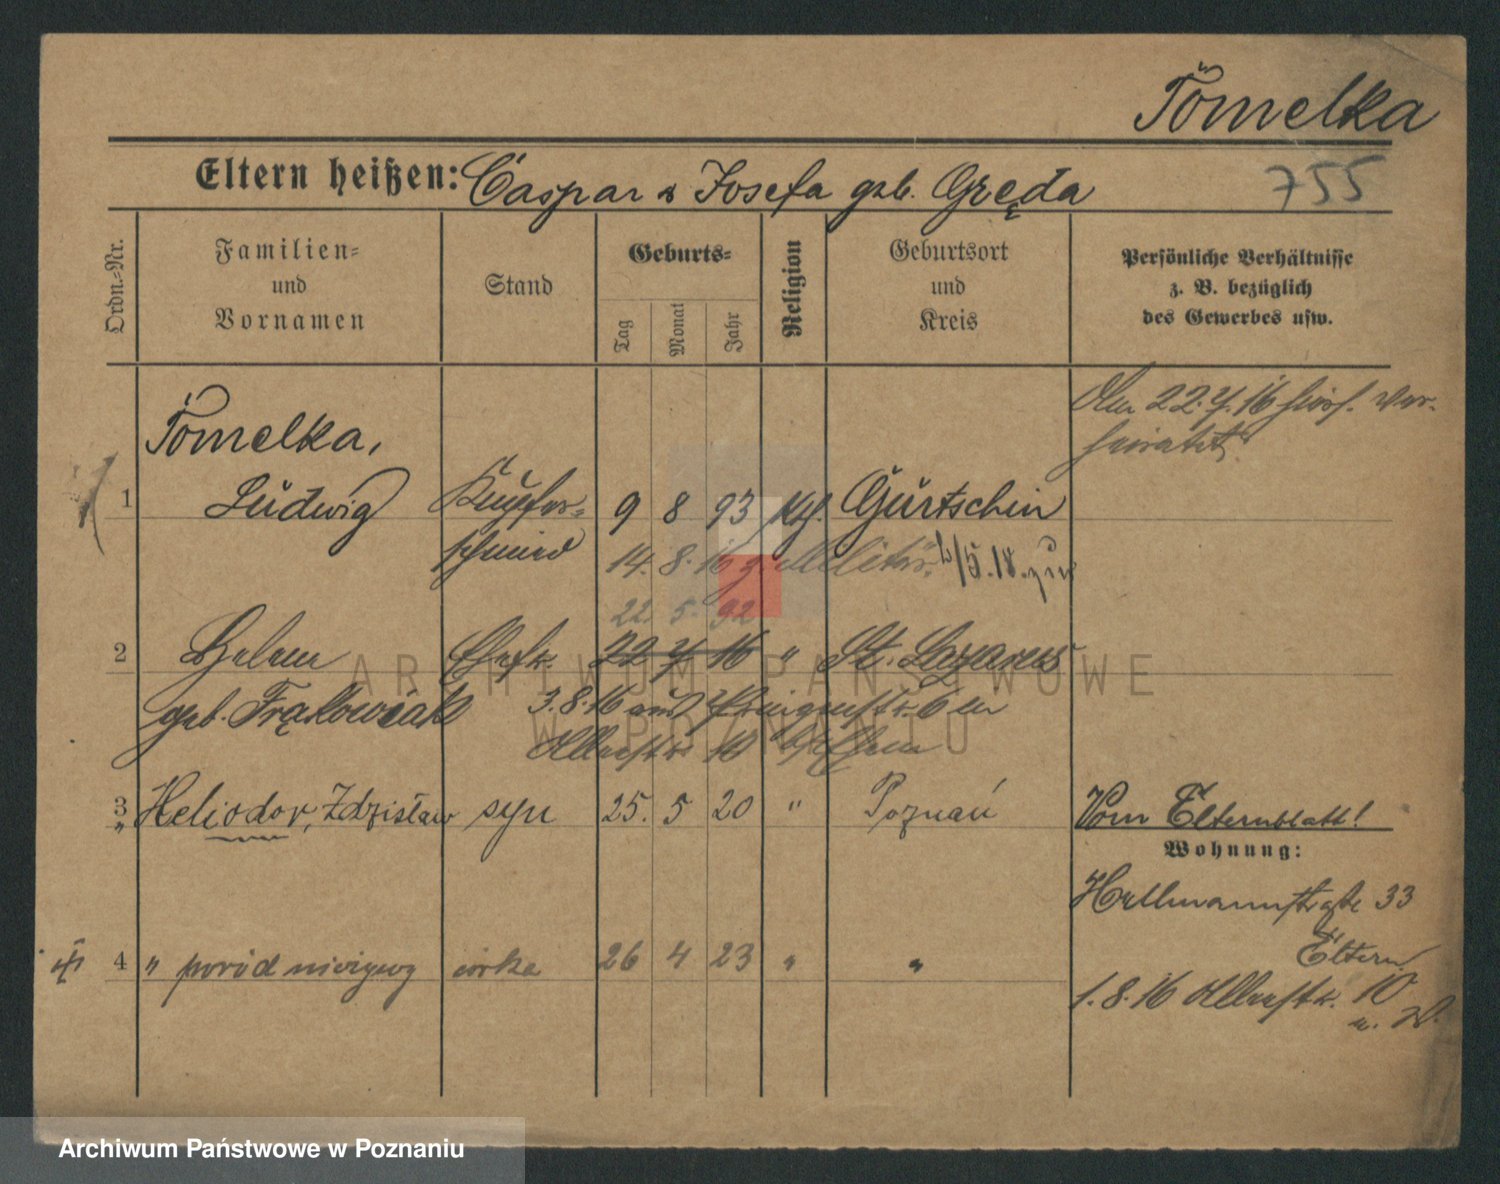 Tomelka
755
Eltern heißen: Caspar & Josefa geb. Gręda
Ordn.-Nr.
Familien- und Vornamen
Stand
Geburts-
Tag
Monat
Jahr
Religion
Geburtsort und Kreis
Persönliche Verhältnisse z. B. bezüglich des Gewerbes usw.
22. 7. 16 verheiratet
Tomelka,
1 Ludwig Kupferschmied 9 8 93 kth. Gurtschin
14. 8. 16 z. Militär. 5. 18. zur
22. 5. 92
2 Helene Ehefr. 22 7 16 " St. Lazarus
geb. Frąkowiak 3. 8. 16 aus 6 in
10
3 Heliodor, Zdzisław syn 25. 5 20 " Poznań
Vom Elternblatt!
Wohnung:
33
Eltern
1. 8. 16 10
4 " poród nieżywy córka 26 4 23 " "
ARCHIWUM PAŃSTWOWE
W POZNANIU
Archiwum Państwowe w Poznaniu